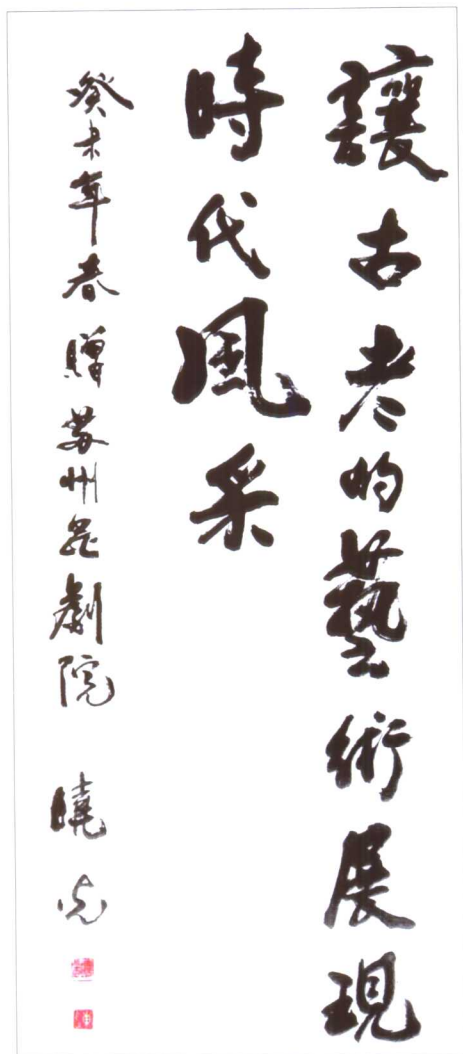 讓古老的藝術展現
時代風采
癸未年春贈苏州昆劇院 曉光